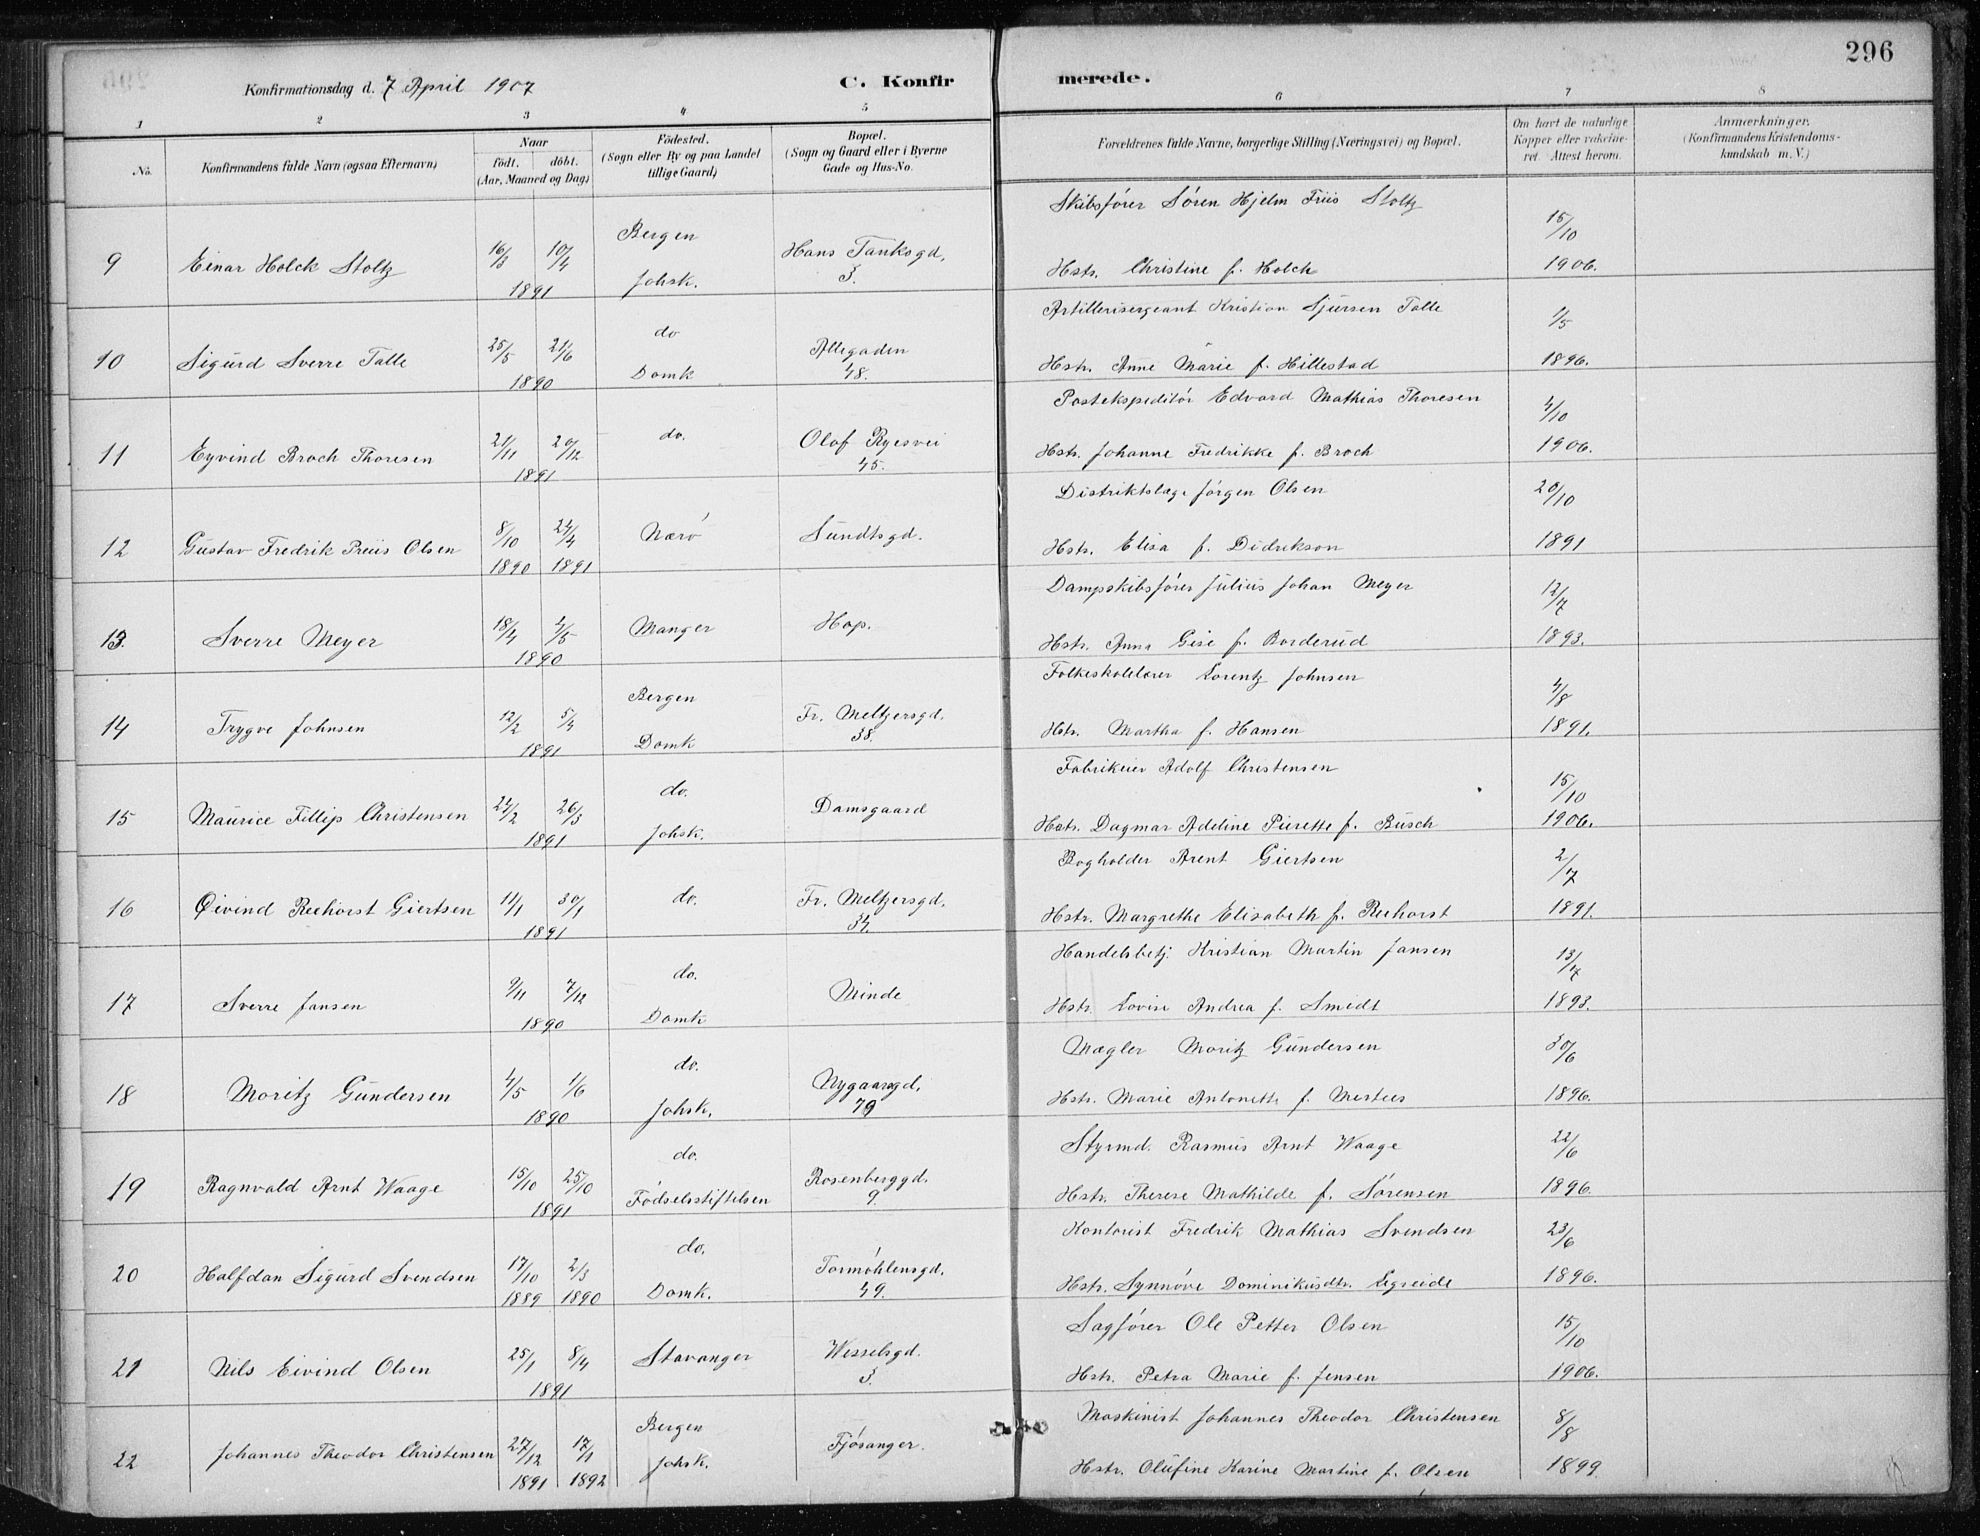 296
Konfirmationsdag d. 7 April 1907
C. Konfir merede.
1 2 3 4 5 6 7 8
No. Konfirmandens fulde Navn (ogsaa Efternavn)
Naar födt. döbt. (Aar, Maaned og Dag)
Födested. (Sogn eller By og paa Landet tillige Gaard)
Bopæl. (Sogn og Gaard eller i Byerne Gade og Hus-No.
Forældrenes fulde Navne, borgerlige Stilling (Næringsvei) og Bopæl.
Om havt de naturlige Kopper eller vakcineret. Attest herom.
Anmærkninger. (Konfirmandens Kristendomskundskab m. V.)
Bergen Skibsfører Sören Hjelm Friis Stoltz 15/10
9 Einar Holck Stoltz 16/3 10/4 Hans Tanksgd.
1891 Johsk. 3. Hstr. Christine f. Holck 1906.
do Artillerisergeant Kristian Sjursen Talle 1/5
10 Sigurd Sverre Talle 25/5 21/6 Allegaden
1890 Domk 48. Hstr. Anne Marie f. Hillestad 1896.
do. Postekspeditör Edvard Mathias Thoresen 4/10
11 Eyvind Broch Thoresen 21/11 20/12 Olaf Ryesvei
1891 45. Hstr. Johanne Fredrikke f. Broch 1906.
Distriktslæge Jörgen Olsen 20/10
12 Gustav Fredrik Preiis Olsen 8/10 24/4 Nærö Sundtsgd.
1890 1891 Hstr. Elisa f. Didrikson 1891
Dampskibsfører Julius Johan Meyer 12/7
13. Sverre Meyer 18/4 4/5 Manger Hop.
1890 Hstr. Anna Gise f. Borderud 1893.
Bergen Folkeskolelærer Lorentz Johnsen 4/8
14 Trygve Johnsen 12/2 5/4 Fr. Meltzersgd.
1891 Domk 38. Hstr. Martha f. Hansen 1891.
do. Fabrikeier Adolf Christensen 15/10
15 Maurice Fillip Christensen 24/2 26/3 Damsgaard
1891 Johsk. Hstr. Dagmar Adeline Pierette f. Busch 1906.
Bogholder Arent Giertsen 2/7
16 Øivind Reehorst Giertsen 11/1 30/1 do. Fr. Meltzersgd.
1891 34. Hstr. Margrethe Elisabeth f. Reehorst 1891.
do. Handelsbetj. Kristian Martin Jansen 13/7
17 Sverre Jansen 9/11 7/12 Minde
1890 Domk Hstr. Lovise Andrea f. Smedt 1893.
do. Mægler Moritz Gundersen 30/6
18 Moritz Gundersen 4/5 1/6 Nygaardsgd.
1890 Johsk. 79 Hstr. Marie Antonette f. Mertees 1896.
do. Styrmd. Rasmus Arnt Waage 22/6
19 Ragnvald Arnt Waage 15/10 25/10 Rosenberggd.
1891 Födselsstiftelsen 9. Hstr. Therese Mathilde f. Sörensen 1896.
do. Kontorist Fredrik Mathias Svendsen 23/6
20 Halfdan Sigurd Svendsen 17/10 2/3 Tormöhlensgd.
1889 1890 Domk. 49. Hstr. Synnöve Dominikusdtr. Legreide 1896.
Sagfører Ole Petter Olsen 15/10
21 Nils Eivind Olsen 25/1 8/4 Stavanger Wesselsgd.
1891 3. Hstr. Petra Marie f. Jensen 1906.
Bergen Maskinist Johannes Theodor Christensen 8/8
22 Johannes Theodor Christensen 27/12 17/1 Fjösanger.
1891 1892 Johsk. Hstr. Olufine Karine Martine f. Olsen 1899.